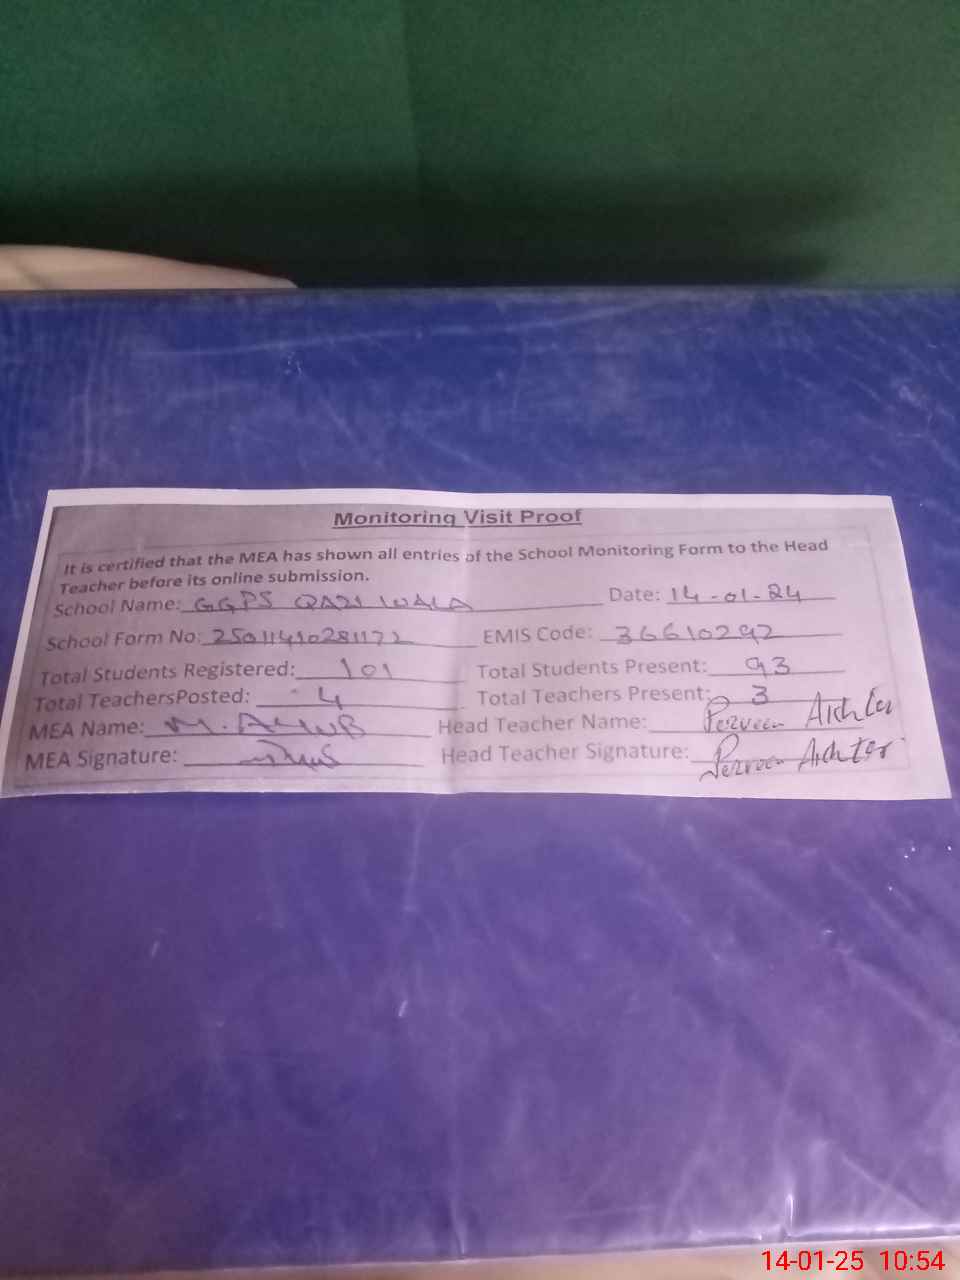 Monitoring Visit Proof
It is certified that the MEA has shown all entries of the School Monitoring Form to the Head
Teacher before its online submission.
School Name: GGPS QAZI WALA Date: 14-01-24
School Form No: 25011410281172 EMIS Code: 36610292
Total Students Registered: 101 Total Students Present: 93
Total TeachersPosted: 4 Total Teachers Present: 3
MEA Name: M. AYUB Head Teacher Name: Perveen Akhter
MEA Signature: Head Teacher Signature: Perveen Akhter
14-01-25 10:54